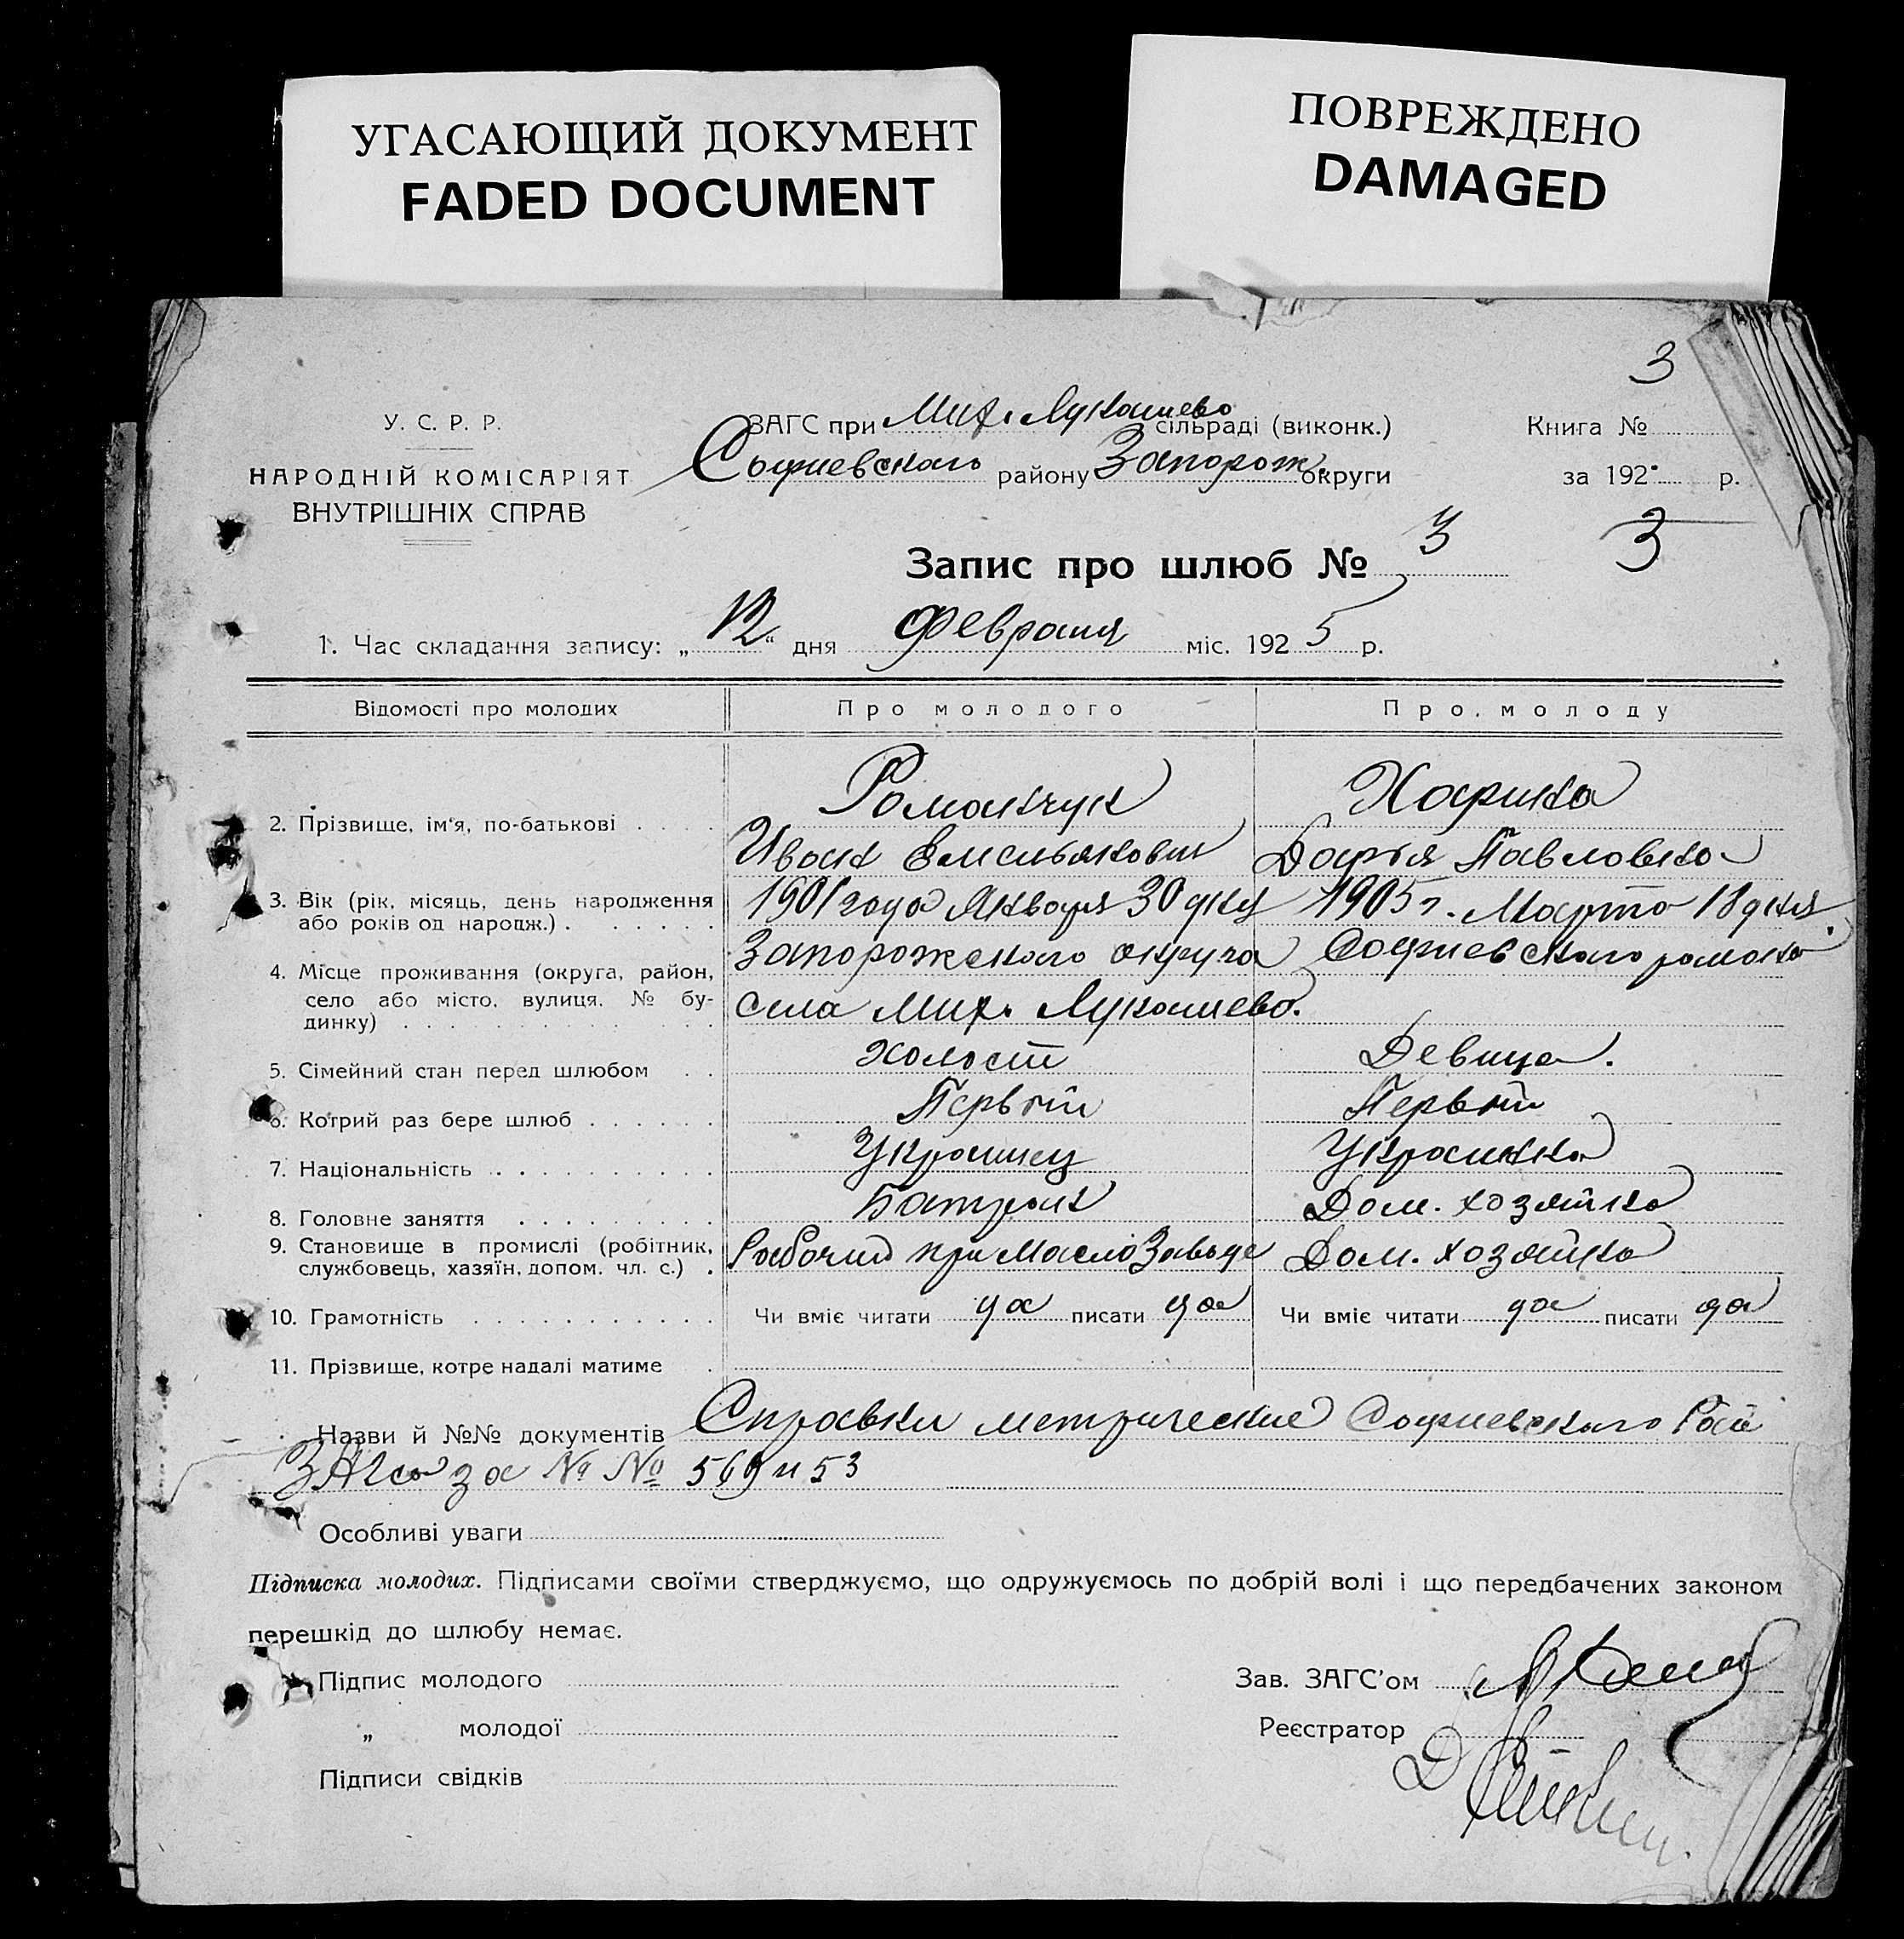 УГАСАЮЩИЙ ДОКУМЕНТ
FADED DOCUMENT
ПОВРЕЖДЕНО
DAMAGED
3
У. С. Р. Р.
НАРОДНІЙ КОМІСАРІЯТ
ВНУТРІШНІХ СПРАВ
ЗАГС при Мих. Лукашево сільраді (виконк.)
Софиевского району Запорож. округи
Книга №
за 192 р.
3
Запис про шлюб № 3
1. Час складання запису: „ 12 “ дня Февраля міс. 1925 р.
Відомості про молодих Про молодого Про молоду
2. Прізвище, ім'я, по-батькові Романчук
Иван Емельянович Дарья Павловна
3. Вік (рік, місяць, день народження або років од народж.) 1901 года Января 30 дня 1905 г. Марта 18 дня
4. Місце проживання (округа, район, село або місто, вулиця, № будинку) Запорожского округа Софиевского района
села Мих. Лукашево.
5. Сімейний стан перед шлюбом холост Девица.
6. Котрий раз бере шлюб Первый Первый
7. Національність Украинец Украинка
8. Головне заняття Батрак Дом. хозяйка
9. Становище в промислі (робітник, службовець, хазяїн, допом. чл. с.) Рабочий при МаслоЗаводе Дом. хозяйка
10. Грамотність Чи вміє читати да писати да Чи вміє читати да писати да
11. Прізвище, котре надалі матиме
Назви й №№ документів Справки метрические Софиевского Рай
ЗАГСа за № № 569 и 53
Особливі уваги
Підписка молодих. Підписами своїми стверджуємо, що одружуємось по добрій волі і що передбачених законом
перешкід до шлюбу немає.
Підпис молодого
„ молодої
Підписи свідків
Зав. ЗАГС'ом
Реєстратор